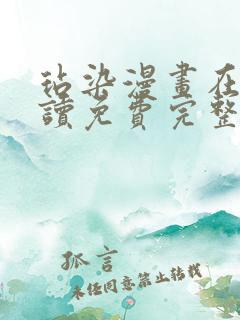 玷染漫畫在
讀免費完整
孤言
未经同意禁止转载